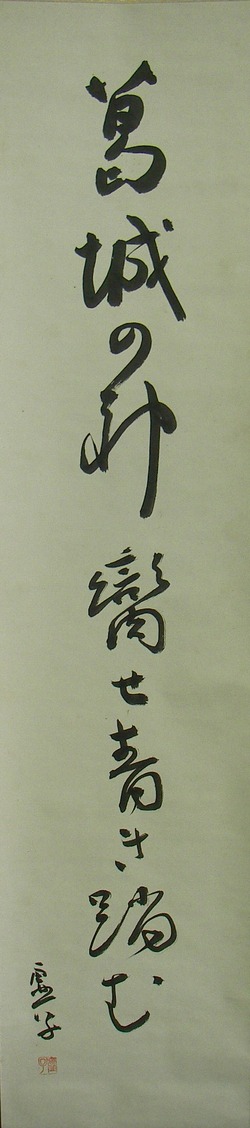 葛城の神臠せ青き踏む
虚子